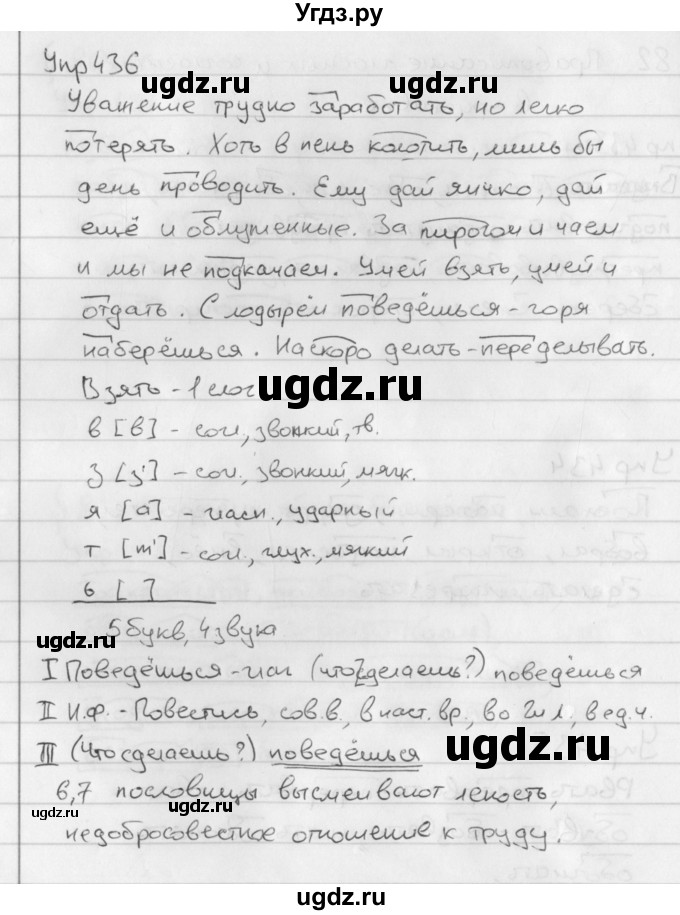 Угдз.ру
Упр 436
ugdz.ru ugdz.ru
Уважение трудно заработать, но легко
потерять. Хоть в пень колотить, лишь бы
день проводить. Ему дай яичко, дай
ещё и облупленные. За пирогом и чаем
и мы не подкачаем. Умей взять, умей и
отдать. С лодырем поведёшься - горя
наберёшься. Наскоро делать - переделывать.
Взять - 1 слог
ugdz.ru
в [в] - согл., звонкий, тв.
з [з'] - согл., звонкий, мягк.
я [а] - гласн., ударный
т [т'] - согл., глух., мягкий
ь [ ]
5 букв, 4 звука
ugdz.ru ugdz.ru
I Поведёшься - глаг (что сделаешь?) поведёшься
II И.Ф. - Повестись, сов.в., в наст. вр., во 2 и л, в ед.ч.
ugdz.ru
III (Что сделаешь?) поведёшься
6,7 пословицы высмеивают леность,
ugdz.ru ugdz.ru
недобросовестное отношение к труду.
ugdz.ru